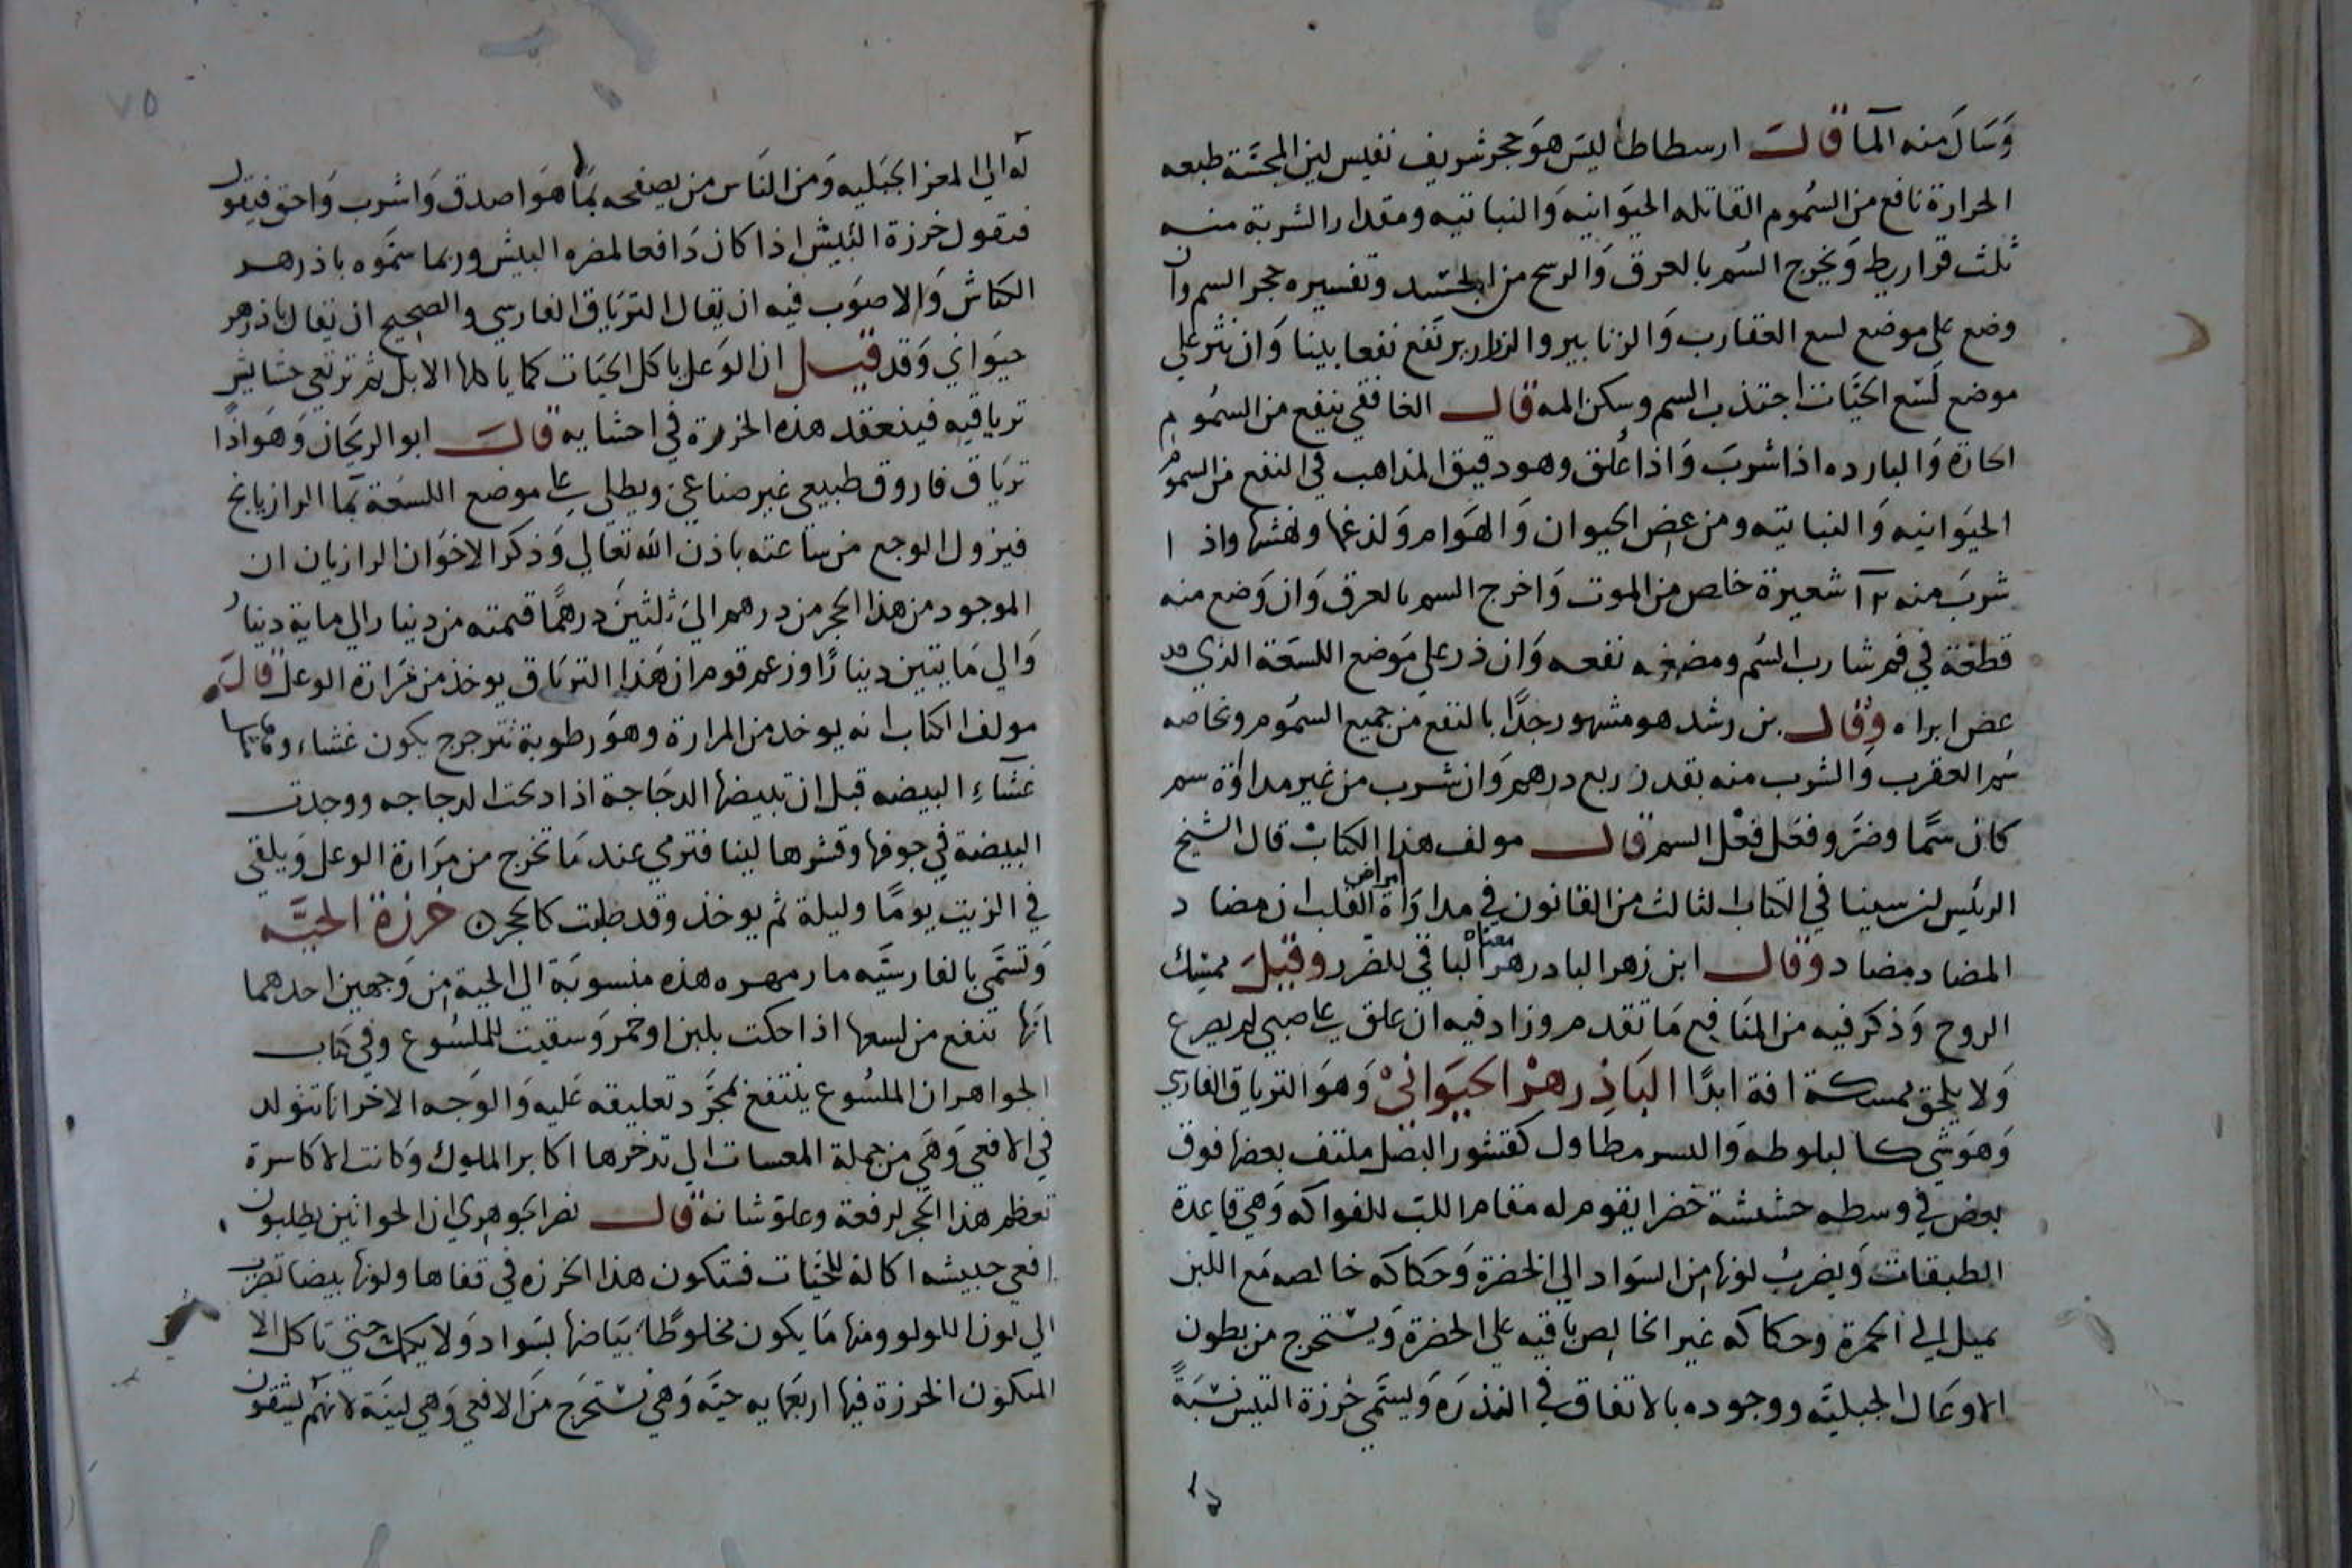 وَسَالَ منه المآ قالَ ارسطاطاليس هوَ حجر شريف نفيس لين المجسَّة طبعه
الحرارة نافع من السُموم القاتله الحيَوانيه وَالنباتيه ومقدار الشربة منه
ثلث قراريط وَيخرج السُم بالعرق وَالرسح من الجسد وتفسيره حجر السم وان
وضع على موضع لسع العقارب وَالزنابير والذراريح نفع نفعا بينا وَان نثر علي
موضع لَسْع الحيَّات اجتذب السم وسكن المه قال الغافقي ينفع من السمُوم
الحارة وَالبارده اذا شربَ وَاذا عُلق وهو دقيق المذاهب في النفع من السموم
الحيَوانيه وَالنباتيه ومن عض الحيوان وَالهَوام وَلدغها ونهشها واذا
شربَ منه ١٢ شعيرة خلص من الموت وَاخرج السم بالعرق وَان وَضع منه
قطعَة في فم شارب السُم ومضغه نفعه وَان ذر علي مَوضع اللسعَة الذي قد
عض ابراه وقال بن رشد هو مشهور جدًّا بالنفع من جميع السمُوم وبخاصه
سُم العقرب وَالشرب منه بقدر ربع درهم وَان شرب من غير مداوَاة سم
كان سمًّا وضرَّ وفعَل فِعْل السم قال مولف هذا الكتابْ قال الشيخ
الرئيس بن سينا في الكتاب الثالث من القانون في مداوَاة امراض القلب ان مضاد
المضاد مضاد وقال ابن زهر البادزهر معناه الباقي للضرر وقيلَ ممسك
الروح وَذكر فيه من المنَافِع مَا تقدم وزاد فيه ان علق على صبي لم يصرع
وَلا يلحق ممسكه افة ابدًا البَاذِزهْر الحيَوَانيْ وَهوَ الترياق الفارسي
وَهوَ شي كالبلوطه وَالبسر مطاول كقشور البصَل ملتف بعضها فوق
بعض في وسطه حشيشة خضرا يقوم له مقام اللب للفواكه وَهي قاعدة
الطبقات وَيضربُ لونها من السوَاد الي الخضرة وَحكاكه خالصه مَع اللبن
يميل الي الحمرة وحكاكه غير الخالِص باقيه علي الخضرة وَيستخرج من بطون
الاوعَال الجبليَّه ووجوده بالاتفاق في النذرَه وَيسَمَّي خْرزة التيس نسْبَةً
لهَ الي المعز الجَبَليه وَمن النَاس من يصفحه بما هوَ اصدق وَاشرب وَاحق فيقول
فيقول خرزة البَيش اذا كان دَافعا لمضره البيش وربما سَمَّوه باذزهر
الكباش وَالاصوَب فيه ان يقال الترَياق الفارسي والصَحيح ان يقال باذزهر
حيوَاني وَقد قيل ان الوَعل ياكل الحيَات كما ياكلها الابل ثم ترتعي حشايش
ترياقيه فينعقد هذه الخرزة في احشايه قالَ ابو الريحَان وَهوَ اذًا
تريَاق فاروق طبيعي غير صناعي ويطلي على موضع اللسعَة بمَا الرازيانج
فيزول الوجع من ساعته باذن الله تعَالي وَذكر الاخوَان الرازيان ان
الموجود من هذا الحجر من درهم اليَ ثلثينَ درهمًا قيمته من دينار الي ماية دينار
وَالي مَايتين دينارًا وزعم قوم ان هَذا الترياق يوخذ من مَرَارة الوعل قالَ
مولف الكتاب انه يوخذ من المرارة وهوَ رطوبة تترجرج يكون غشاء وقايتها
غشَآءِ البيضه قبل ان تبيضها الدجَاجة اذا دبحَت الدجاجه ووجدت
البيضة في جوفها وقشرها لينا فترمي عند مَا تخرج من مِرَارة الوعل وَيلقي
في الزيت يومًا وليلة ثم يوخذ وقد صلبت كالحجر ٥ خرزة الحيَّه
وَتسَمَّي بالفارسيَّه مارمهره هذه منسوبَة الي الحية من وَجهين احدهما
انَّها تنفع من لسعها اذا حكت بلبن او خمر وَسقيت للملسُوع وفي كتاب
الجواهر ان الملسُوع ينتفع بمجَرَّد تعليقه عَليه وَالوَجه الاخر انها تتولد
في الافعي وَهيَ من جملة النفيسات التي تدخرها اكابر الملوك وَكانت الاكاسرة
تعظم هذا الحجر لرفعة وعلو شانه قال نصر الجوهري ان الحوائين يطلبون
افعي خبيثه اكالة للحيَّات فتكون هذا الخرزه في قفاها ولونها بيضا تضرب
الي لون اللولو ومنها مَا يكون مخلوطًا بيَاضها بسَواد وَلا يكمل حتي تاكل الا
المتكون الخرزة فيها اربعمايه حيَّه وَهي تستخرَج مَن الافعي وَهي لينَة لانهَم يشقون